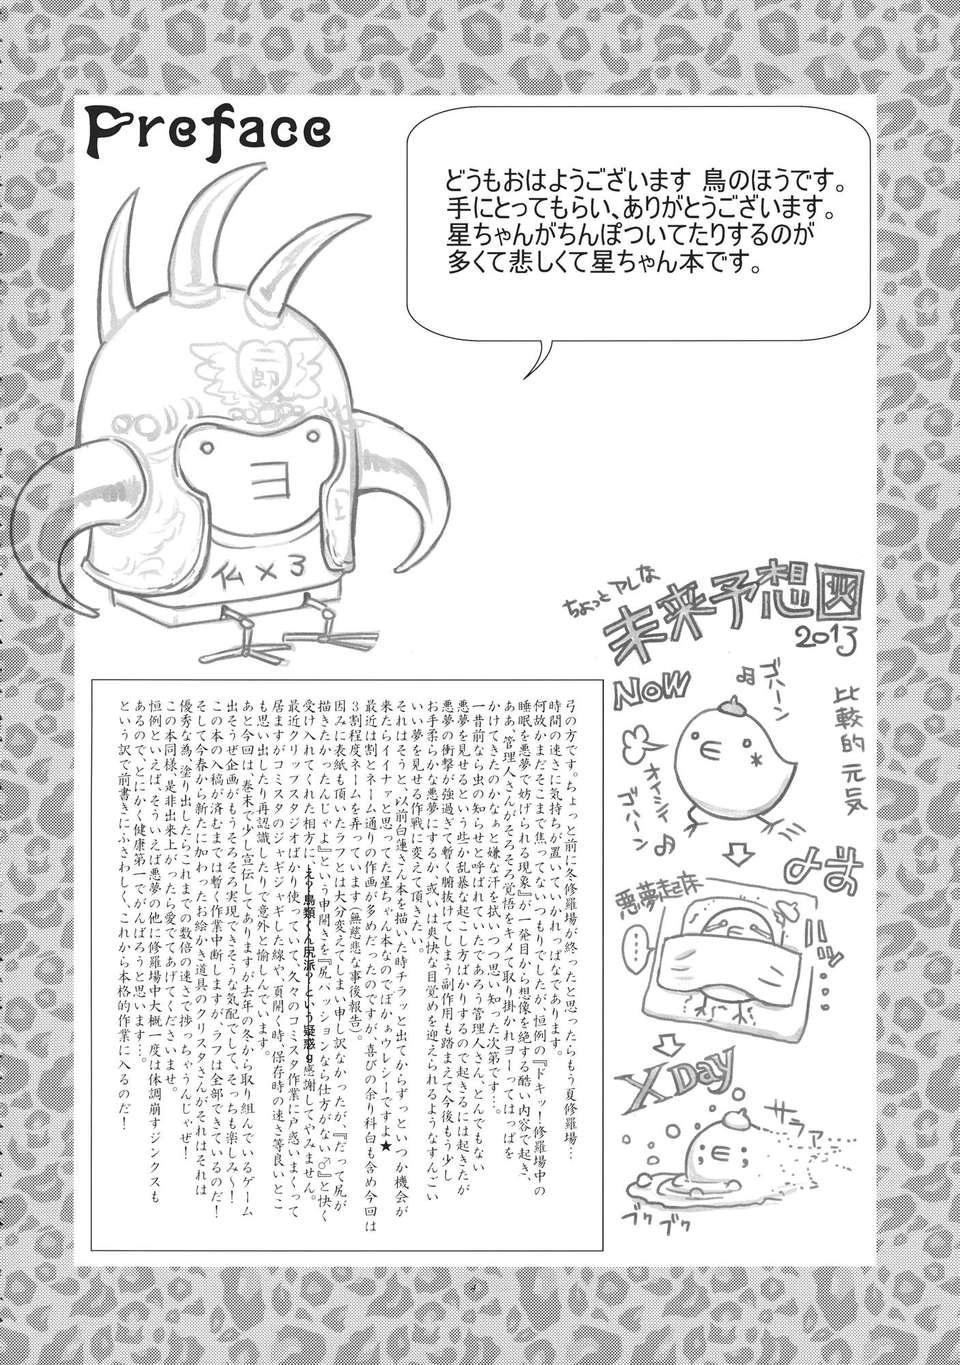 Preface
どうもおはようございます 鳥のほうです。
手にとってもらい、ありがとうございます。
星ちゃんがちんぽついてたりするのが
多くて悲しくて星ちゃん本です。
一郎
上
ヨ
仏×3
ちょっとアレな
未来予想図
2013
NOW
ゴハーン♪
比較的元気
オイシイ
ゴハーン♪
悪夢起床
ハッ…
X Day
サラァ…
ブクブク
弓の方です。ちょっと前に冬修羅場が終ったと思ったらもう夏修羅場…
時間の速さに気持ちが置いていかれっぱなであります。
何故かまだそこまで焦ってないつもりでしたが、恒例の『ドキッ！修羅場中の
睡眠を悪夢で妨げられる現象』が一発目から想像を絶する酷い内容で起き、
ああ、管理人さんがそろそろ覚悟をキメて取り掛かれヨーってはっぱを
かけてきたのかなぁと嫌な汗を拭いつつ思い知った次第です…。
一昔前なら虫の知らせと呼ばれていたであろう管理人さん、とんでもない
悪夢を見せるという些か乱暴な起こし方ばかりするので起きるには起きたが
悪夢の衝撃が強過ぎて暫く腑抜けてしまう副作用も踏まえて今後もう少し
お手柔らかな悪夢にするか、或いは爽快な目覚めを迎えられるようなすんごい
いい夢を見せる作戦に変えて頂きたい。
それはそうと、以前白蓮さん本を描いた時チラッと出てからずっといつか機会が
来たらイイナァと思ってた星ちゃん本なのでばかぁウレシーですよ★
最近は割とネーム通りの作画が多めだったのですが、喜びの余り科白も含め今回は
3割程度ネームを弄っています(無慈悲な事後報告)。
因みに表紙も頂いたラフとは大分変えてしまい申し訳なかったが、『だって尻が
描きたかったんじゃよ』という申開きを『尻パッションなら仕方がない♂』と快く
受け入れてくれた相方に、え？鳥類くん尻派？という疑惑g感謝してやみません。
最近クリップスタジオばかり使っていて、久々のコミスタ作業に戸惑いまくって
居ますがコミスタのジャギジャギした線や、頁開く時、保存時の速さ等良いとこ
も思い出したり再認識したりで意外と愉しんでいます。
あと今回は、巻末で少し宣伝してありますが去年の冬から取り組んでいるゲーム
出そうぜ企画がもうそろそろ実現できそうな気配でして、そっちも楽しみ～！
この本の入稿が済むまでは暫く作業中断しますが、ラフは全部できているのだ！
そして今春から新たに加わったお絵かき道具のクリスタさんがそれはそれは
優秀な為、塗り出したらこれまでの数倍の速さで捗っちゃうんじゃぜ！
この本同様、是非出来上がったら愛でてあげてくださいませ。
恒例といえば、そういえば悪夢の他に修羅場中大概一度は体調崩すジンクスも
あるので、とにかく健康第一でがんばろうと思います…。
という訳で前書きにふさわしく、これから本格的作業に入るのだ！